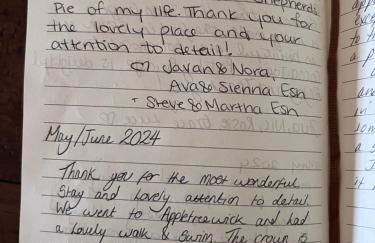 Shepherd's
Pie of my life. Thank you for
the lovely place and your
attention to detail!
♡ Javan & Nora,
Ava & Sienna, Esh
Steve & Martha Esh
May/June 2024
Thank you for the most wonderful
stay and lovely attention to detail.
We went to Appletreewick and had
a lovely walk & swim. The crown is